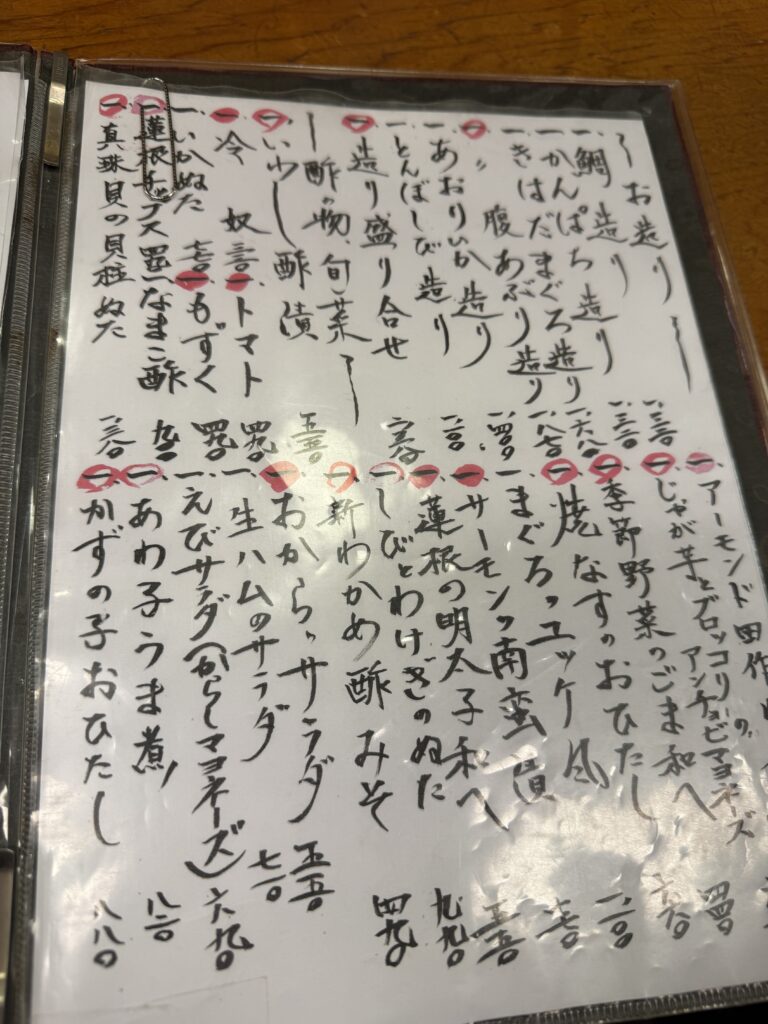 〜お造り〜
一、鯛造り
一、かんぱち造り
一、きはだまぐろ造り 一、六八〇
一、〃 腹あぶり造り 一、八七〇
一、あおりいか造り
一、とんぼしび造り
一、造り盛り合せ
〜酢の物、旬菜〜
一、いわし酢漬 五五〇
一、冷奴 三三〇
一、トマト 四九〇
一、いかぬた 七七〇
一、もずく 四九〇
一、蓮根チップス
一、なまこ酢
一、真珠貝の貝柱ぬた
一、アーモンド田作り
一、じゃが芋とブロッコリーの、アンチョビマヨネーズ 四四〇
一、季節野菜のごま和へ
一、焼なすのおひたし
一、まぐろのユッケ風
一、サーモンの南蛮漬 五五〇
一、蓮根の明太子和へ 九九〇
一、しびとわけぎのぬた
一、新わかめ酢みそ 四九〇
一、おからのサラダ 五五〇
一、生ハムのサラダ
一、えびサラダ(からしマヨネーズ) 六九〇
一、あわ子うま煮
一、かずの子おひたし 八八〇